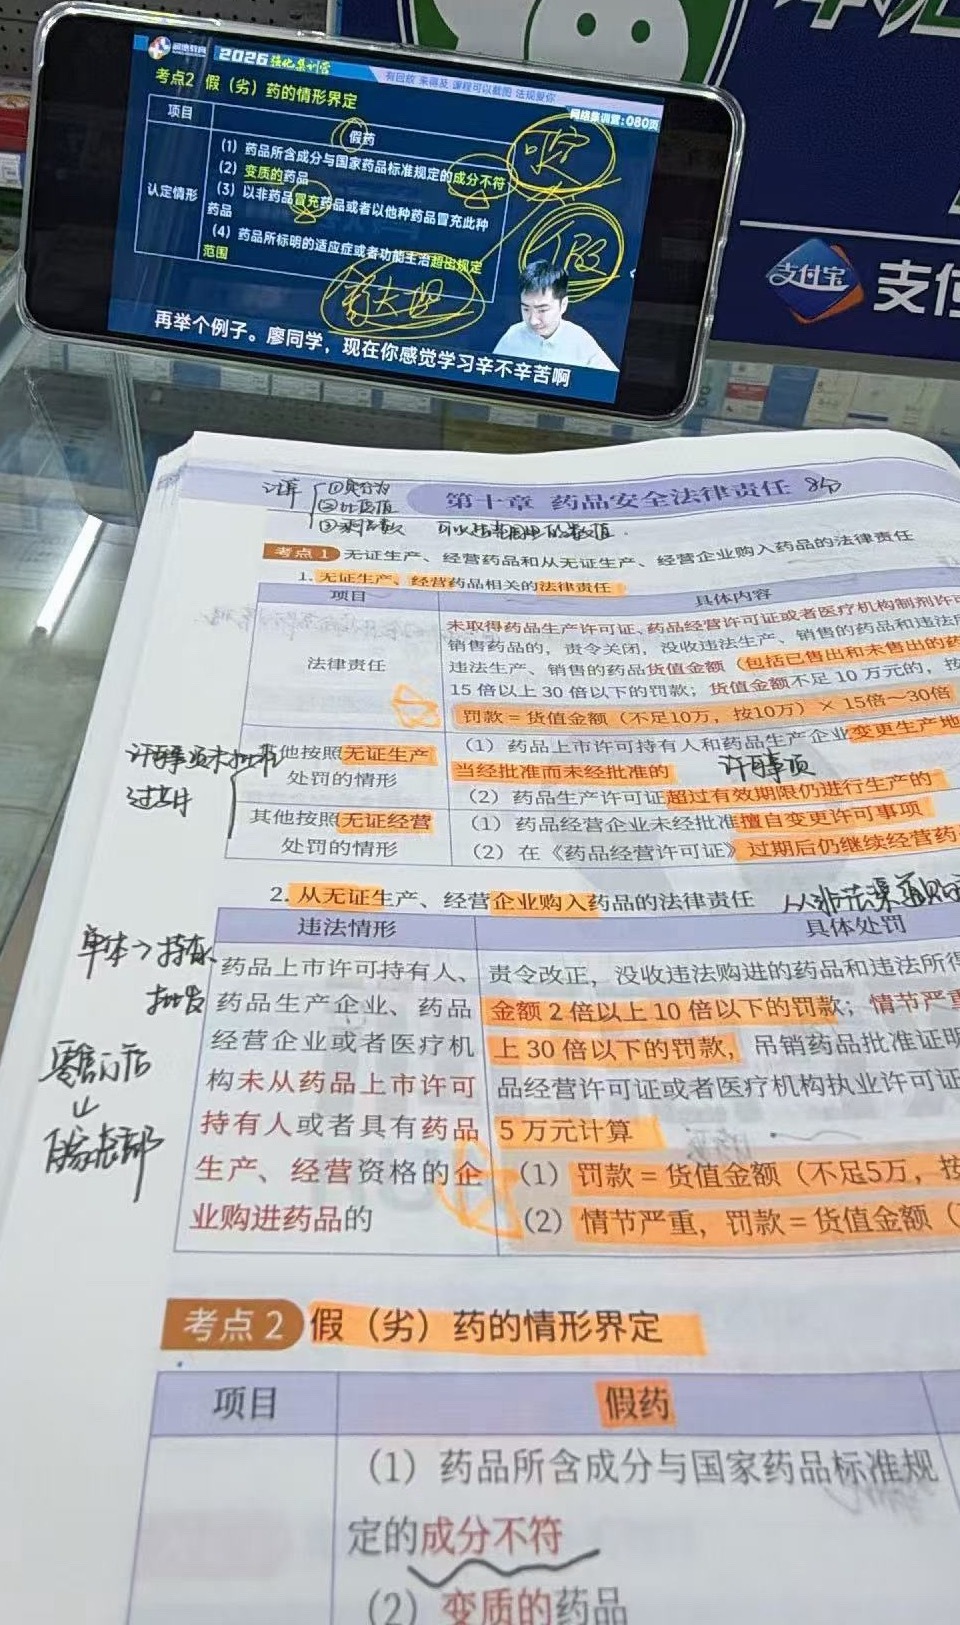 2026强化集训营
有回放 来得及 课程可以截图 法规爱你
考点2 假（劣）药的情形界定
网络集训营:080页
项目
假药
认定情形
（1）药品所含成分与国家药品标准规定的成分不符
（2）变质的药品
（3）以非药品冒充药品或者以他种药品冒充此种
药品
（4）药品所标明的适应症或者功能主治超出规定
范围
假
再举个例子。廖同学，现在你感觉学习辛不辛苦啊
支付宝
支付
第十章 药品安全法律责任 8分
考点1 无证生产、经营药品和从无证生产、经营企业购入药品的法律责任
1. 无证生产、经营药品相关的法律责任
项目
具体内容
法律责任
未取得药品生产许可证、药品经营许可证或者医疗机构制剂许可
销售药品的，责令关闭，没收违法生产、销售的药品和违法所
违法生产、销售的药品货值金额（包括已售出和未售出的药
15 倍以上 30 倍以下的罚款；货值金额不足 10 万元的，按
罚款＝货值金额（不足10万，按10万）×15倍～30倍
他按照无证生产
处罚的情形
（1）药品上市许可持有人和药品生产企业变更生产地
当经批准而未经批准的
许可事项
（2）药品生产许可证超过有效期限仍进行生产的
其他按照无证经营
处罚的情形
（1）药品经营企业未经批准擅自变更许可事项
（2）在《药品经营许可证》过期后仍继续经营药
许可事项未批准
过期
2. 从无证生产、经营企业购入药品的法律责任
从非法渠道购
违法情形
具体处罚
药品上市许可持有人、
药品生产企业、药品
经营企业或者医疗机
构未从药品上市许可
持有人或者具有药品
生产、经营资格的企
业购进药品的
责令改正，没收违法购进的药品和违法所得
金额 2 倍以上 10 倍以下的罚款；情节严重
上 30 倍以下的罚款，吊销药品批准证明
品经营许可证或者医疗机构执业许可证
5 万元计算
（1）罚款＝货值金额（不足5万，按
（2）情节严重，罚款＝货值金额（
单体→持有人
批发
零售门店
↓
总部
考点2 假（劣）药的情形界定
项目
假药
（1）药品所含成分与国家药品标准规
定的成分不符
（2）变质的药品